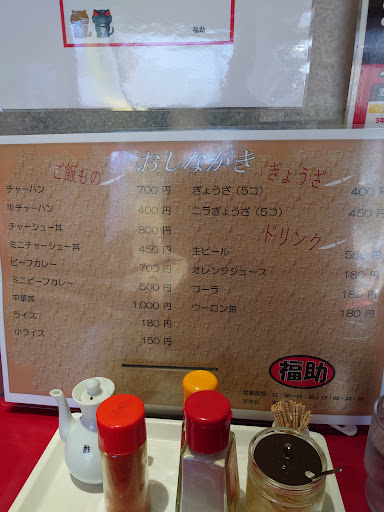 福助
おしながき
ご飯もの
チャーハン 700 円
半チャーハン 400 円
チャーシュー丼 800 円
ミニチャーシュー丼 450 円
ビーフカレー 700 円
ミニビーフカレー 500 円
中華丼 1,000 円
ライス 180 円
小ライス 150 円
ぎょうざ
ぎょうざ（5コ） 400 円
ニラぎょうざ（5コ） 450 円
ドリンク
生ビール 550 円
オレンジジュース 180 円
コーラ 180 円
ウーロン茶 180 円
福助
営業時間
定休日
酢